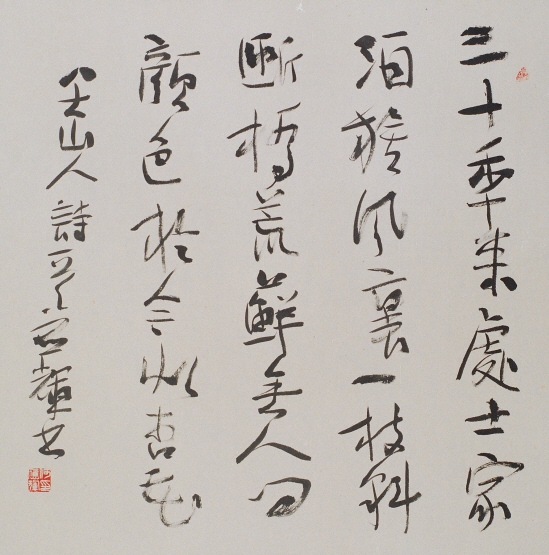 三十年来處士家
酒旗风裏一枝斜
斷橋荒蘚無人问
顏色於今似杏花
八大山人詩一首 輝书